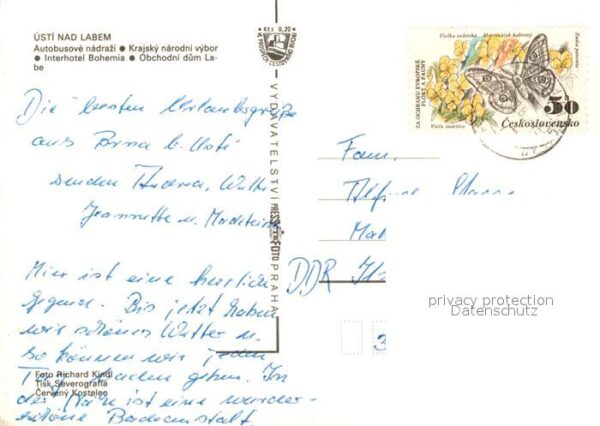 ÚSTÍ NAD LABEM
Autobusové nádraží ● Krajský národní výbor
● Interhotel Bohemia ● Obchodní dům La-
be
Die besten Urlaubsgrüße
aus Brna b. Usti
senden Andrea, Walter
Jeannette u. Madeleine
Hier ist eine herrliche
Gegend. Bis jetzt haben
wir schönes Wetter u.
so können wir jeden
Tag baden gehen. In
der Nähe ist eine wunder-
schöne Badeanstalt.
Foto Richard Kindl
Tisk Severografia
Červený Kostelec
Kčs 0,20
VYDAVATELSTVÍ PRESSFOTO PRAHA
Viola sudetica Martináček habrový
ZA OCHRANU EVROPSKÉ
FLÓRY A FAUNY
50
Československo
Fam.
Alfred
DDR
privacy protection
Datenschutz
3